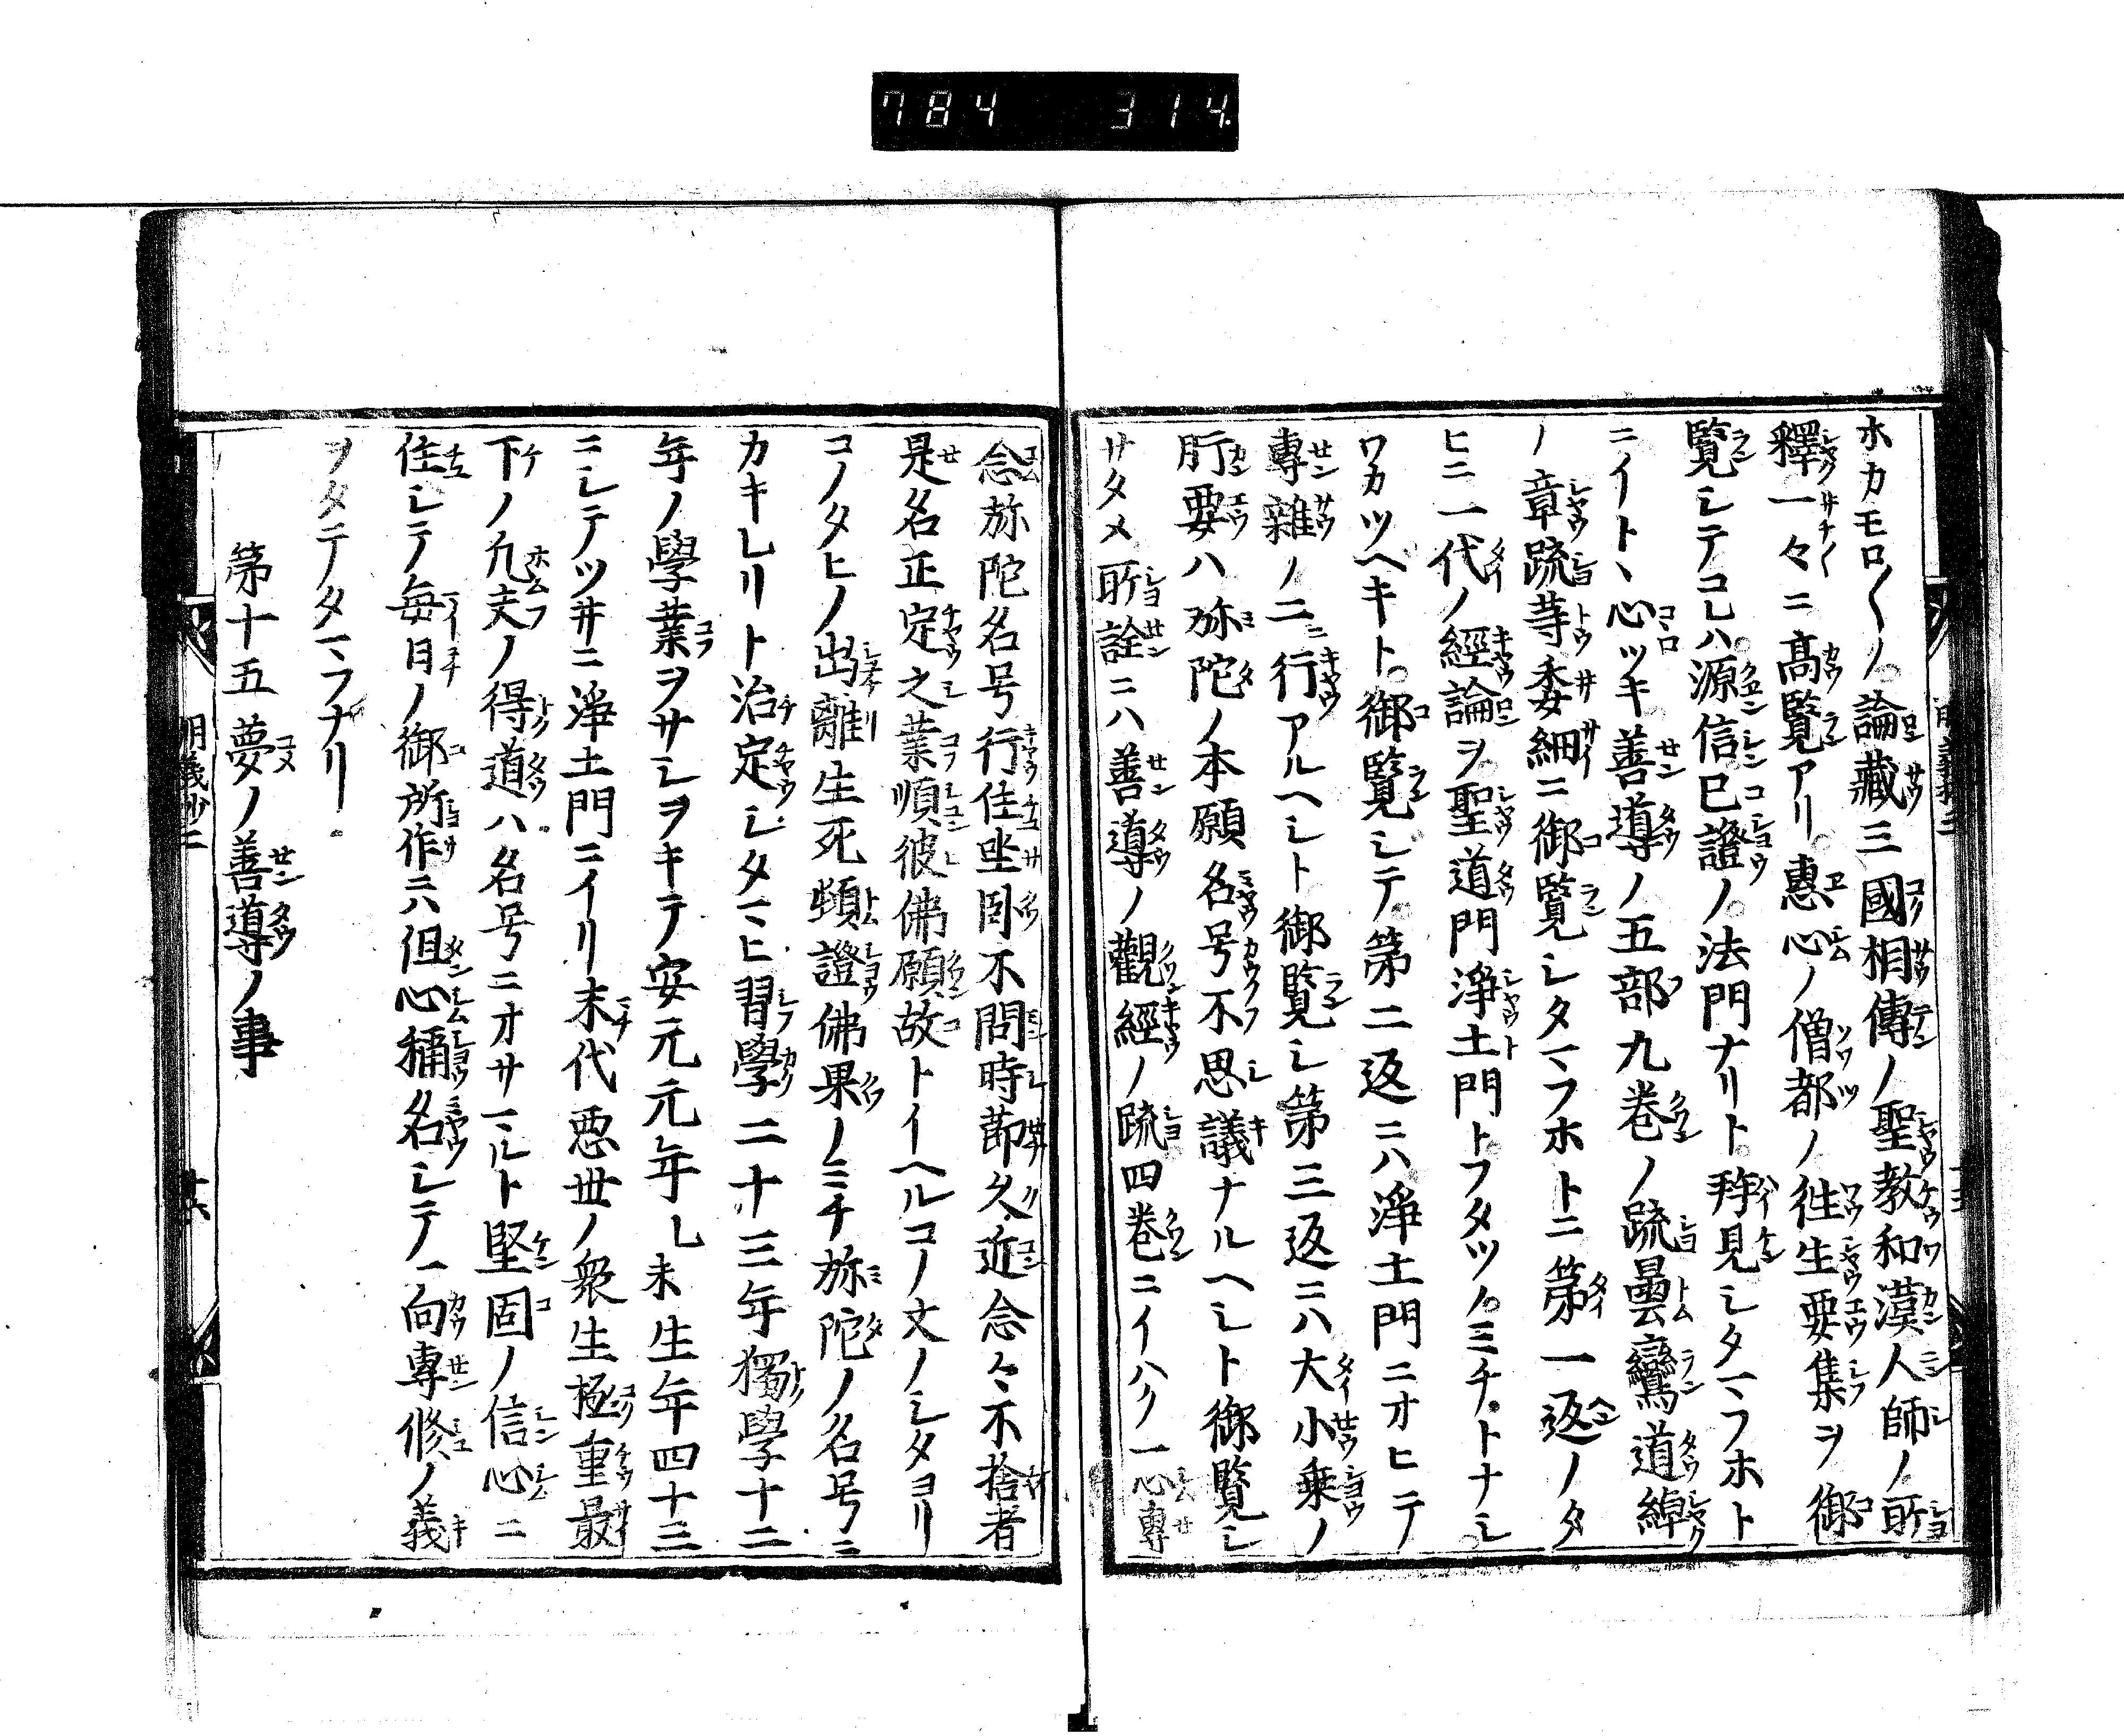 784 314
ホカモロ〱ノ論藏三國相傳ノ聖教和漢人師ノ所
釋一々ニ高覧アリ惠心ノ僧都ノ徃生要集ヲ御
覧シテコレハ源信已證ノ法門ナリト拜見シタマフホト
ニイトヽ心ツキ善導ノ五部九卷ノ疏曇鸞道綽
ノ章疏等委細ニ御覧シタマフホトニ第一返ノタ
ヒニ一代ノ經論ヲ聖道門淨土門トフタツノミチトナシ
ワカツヘキト御覧シテ第二返ニハ淨土門ニオヒテ
專雜ノ二行アルヘシト御覧シ第三返ニハ大小乗ノ
肝要ハ弥陀ノ本願名号不思議ナルヘシト御覧シ
サタメ所詮ニハ善導ノ觀經ノ疏四卷ニイハク一心專
念弥陀名号行住坐卧不問時莭久近念々不捨者
是名正定之業順彼佛願故トイヘルコノ文ノシタヨリ
コノタヒノ出離生死頓證佛果ノミチ弥陀ノ名号ニ
カキレリト治定シタマヒ習學二十三年獨學十二
年ノ學業ヲサシヲキテ安元元年乚未生年四十三
ニシテツ井ニ淨土門ニイリ末代悪世ノ衆生極重最
下ノ凡夫ノ得道ハ名号ニオサマルト堅固ノ信心ニ
住シテ毎日ノ御所作ニハ但心稱名シテ一向專修ノ義
ヲタテタマフナリ
第十五夢ノ善導ノ事
明義抄二